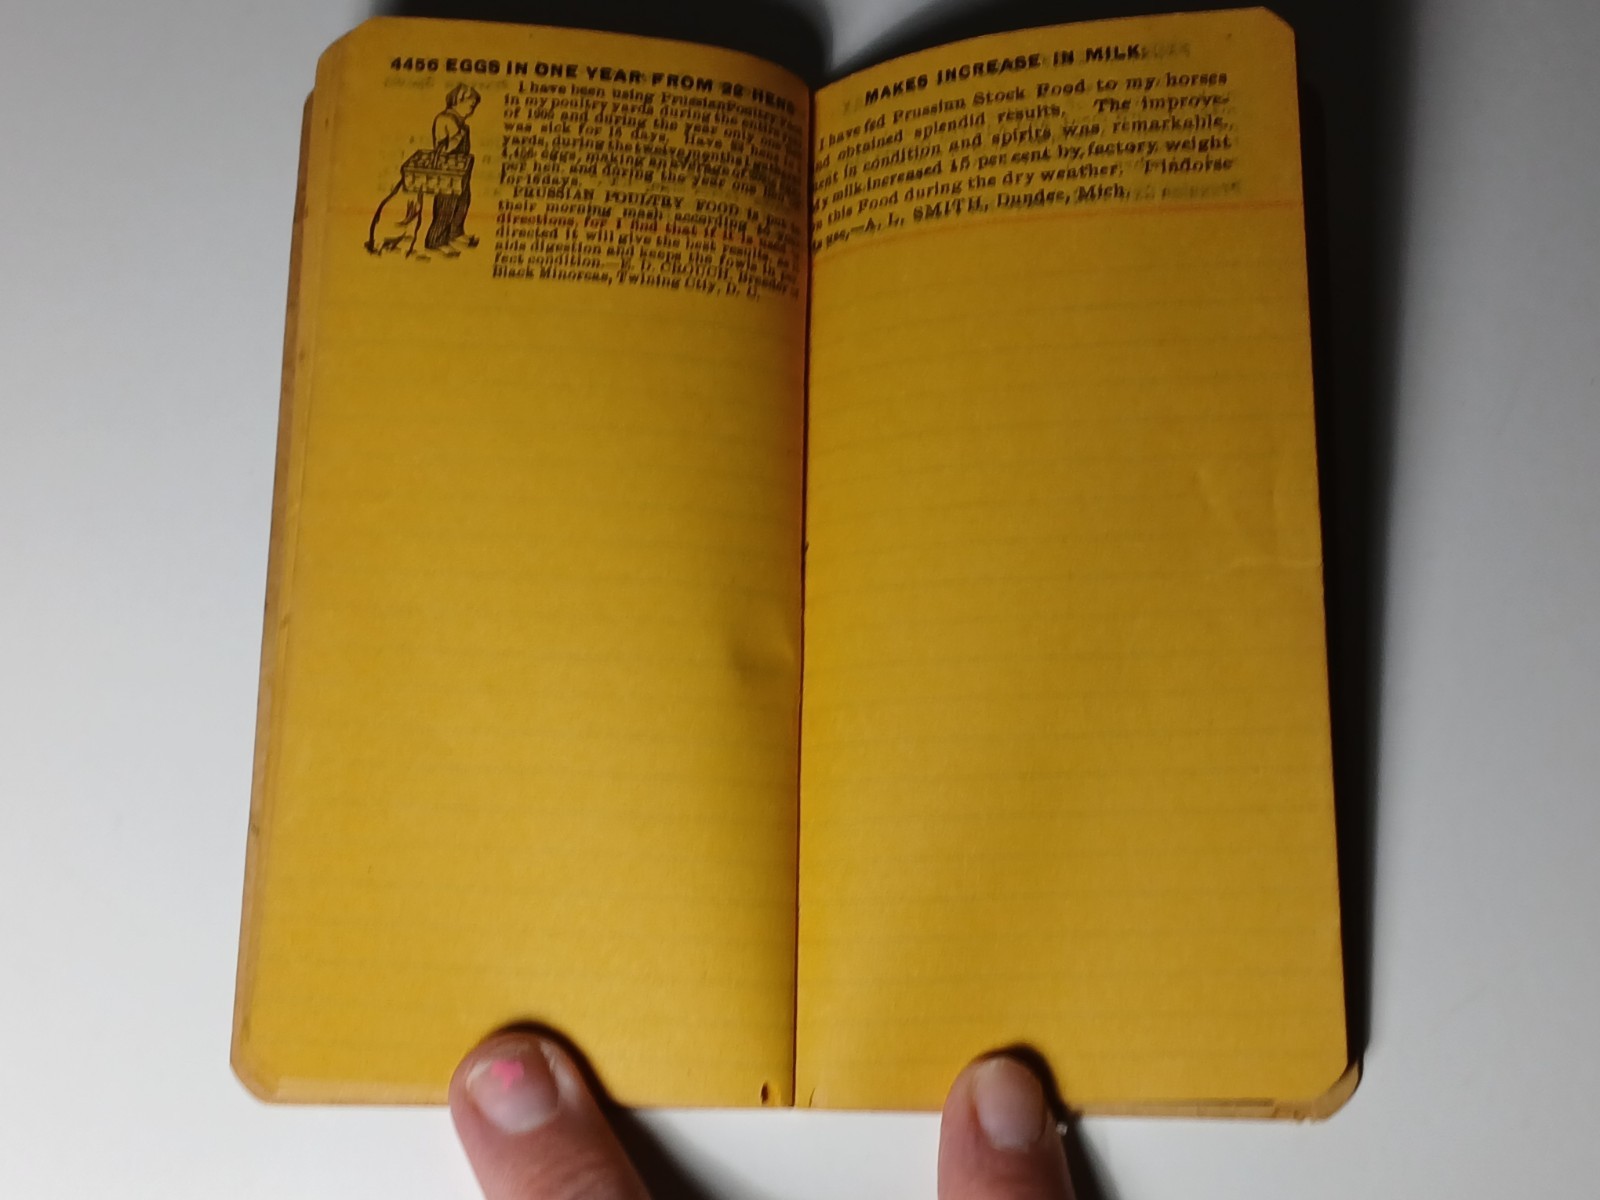 4456 EGGS IN ONE YEAR FROM 28 HENS
I have been using Prussian Poultry Food
in my poultry yards during the entire year
of 1906 and during the year only one
was sick for 15 days. Have 28 hens in
yards, during the twelve months I
4,456 eggs, making an average of
per hen, and during the year one hen
for 15 days.
PRUSSIAN POULTRY FOOD is put in
their morning mash according to your
directions, for I find that if it is used as
directed it will give the best results, as it
aids digestion and keeps the fowls in per
fect condition.—E. D. CROUCH, Breeder of
Black Minorcas, Twining City, D. C.
MAKES INCREASE IN MILK
I have fed Prussian Stock Food to my horses
obtained splendid results. The improve-
ment in condition and spirits was remarkable.
My milk increased 15 per cent by factory weight
this Food during the dry weather. I indorse
its use,—A. L. SMITH, Dundee, Mich.